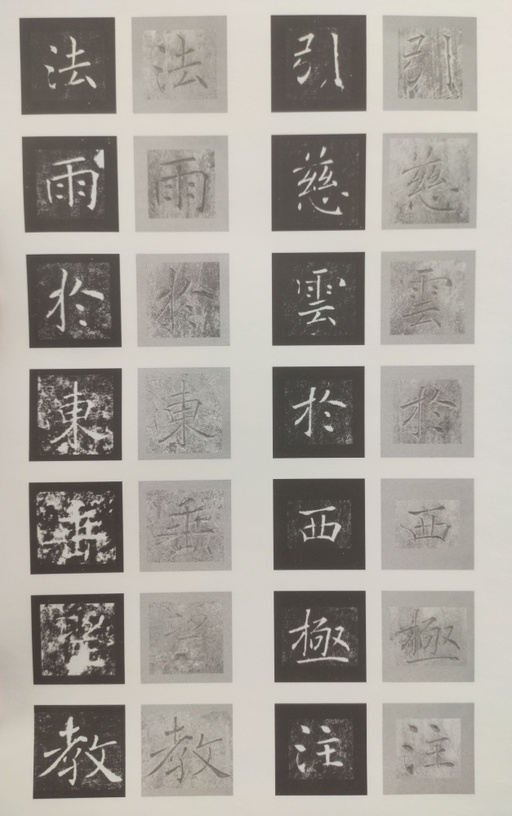 引慈雲於西極注
引慈雲於西極注
法雨於東垂聖教
法雨於東垂聖教